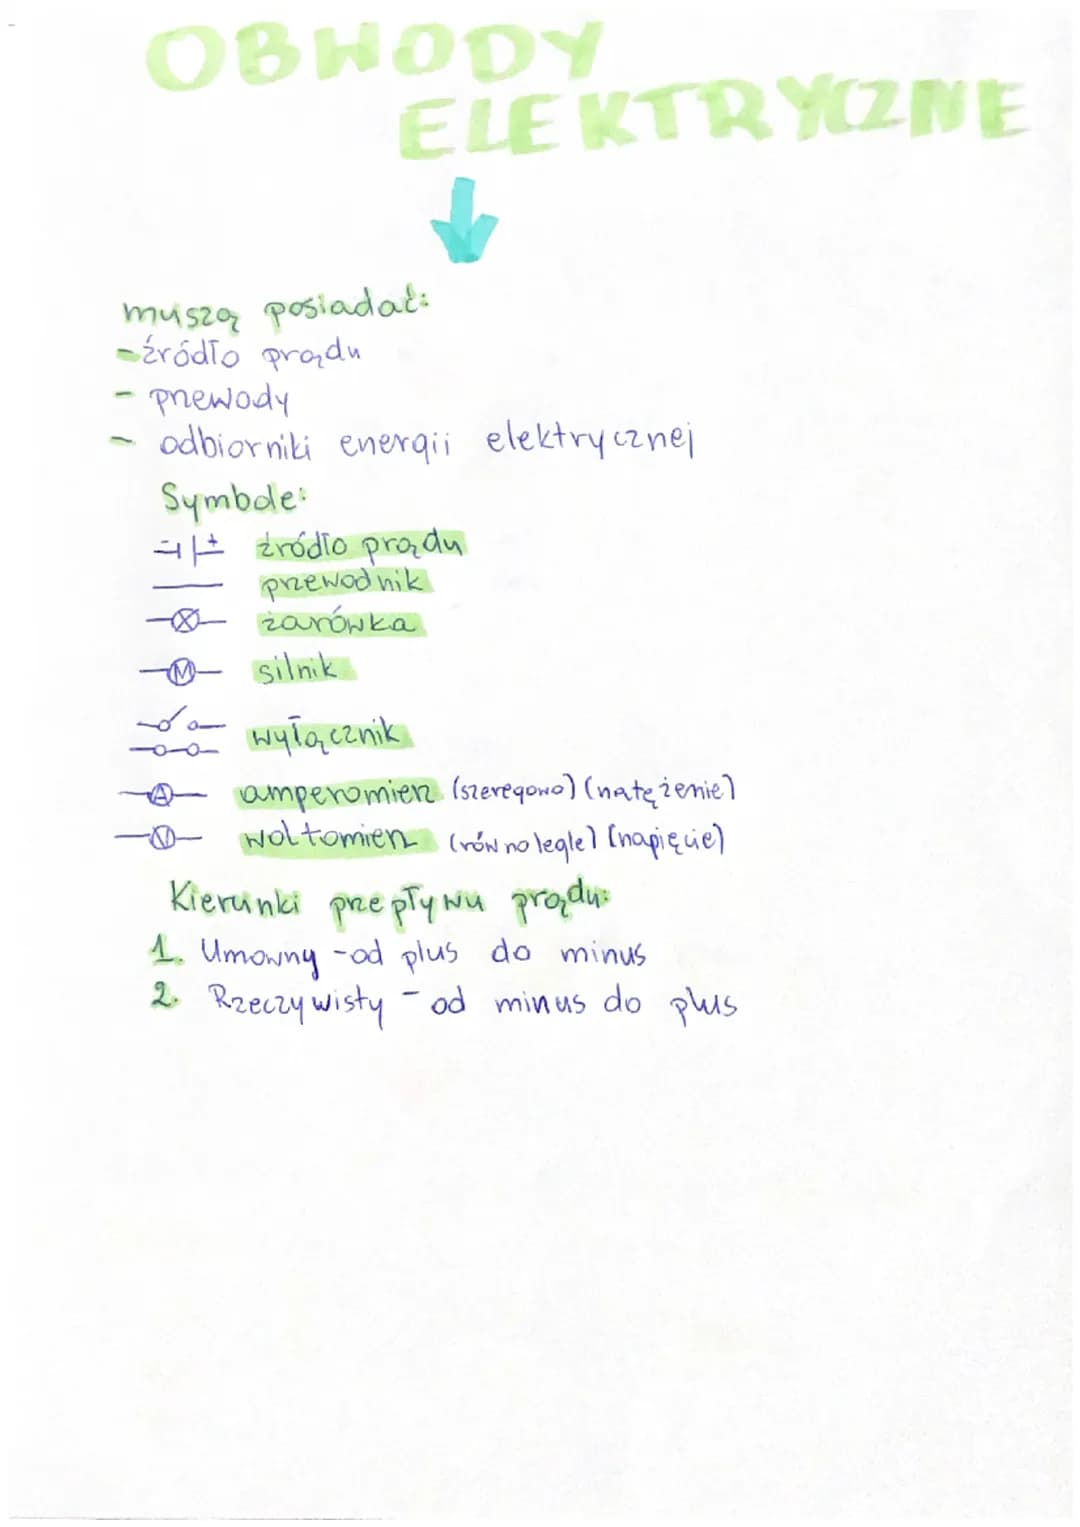 OBWODY
ELEKTRYCZNE
muszą posiadać:
- źródło prądu
- przewody
- odbiorniki energii elektrycznej
Symbole:
- + źródło prądu
przewodnik
żarówka
M silnik
wyłącznik
A amperomierz (szeregowo) (natężenie)
V woltomierz (równolegle) (napięcie)
Kierunki przepływu prądu:
1. Umowny - od plus do minus
2. Rzeczywisty - od minus do plus